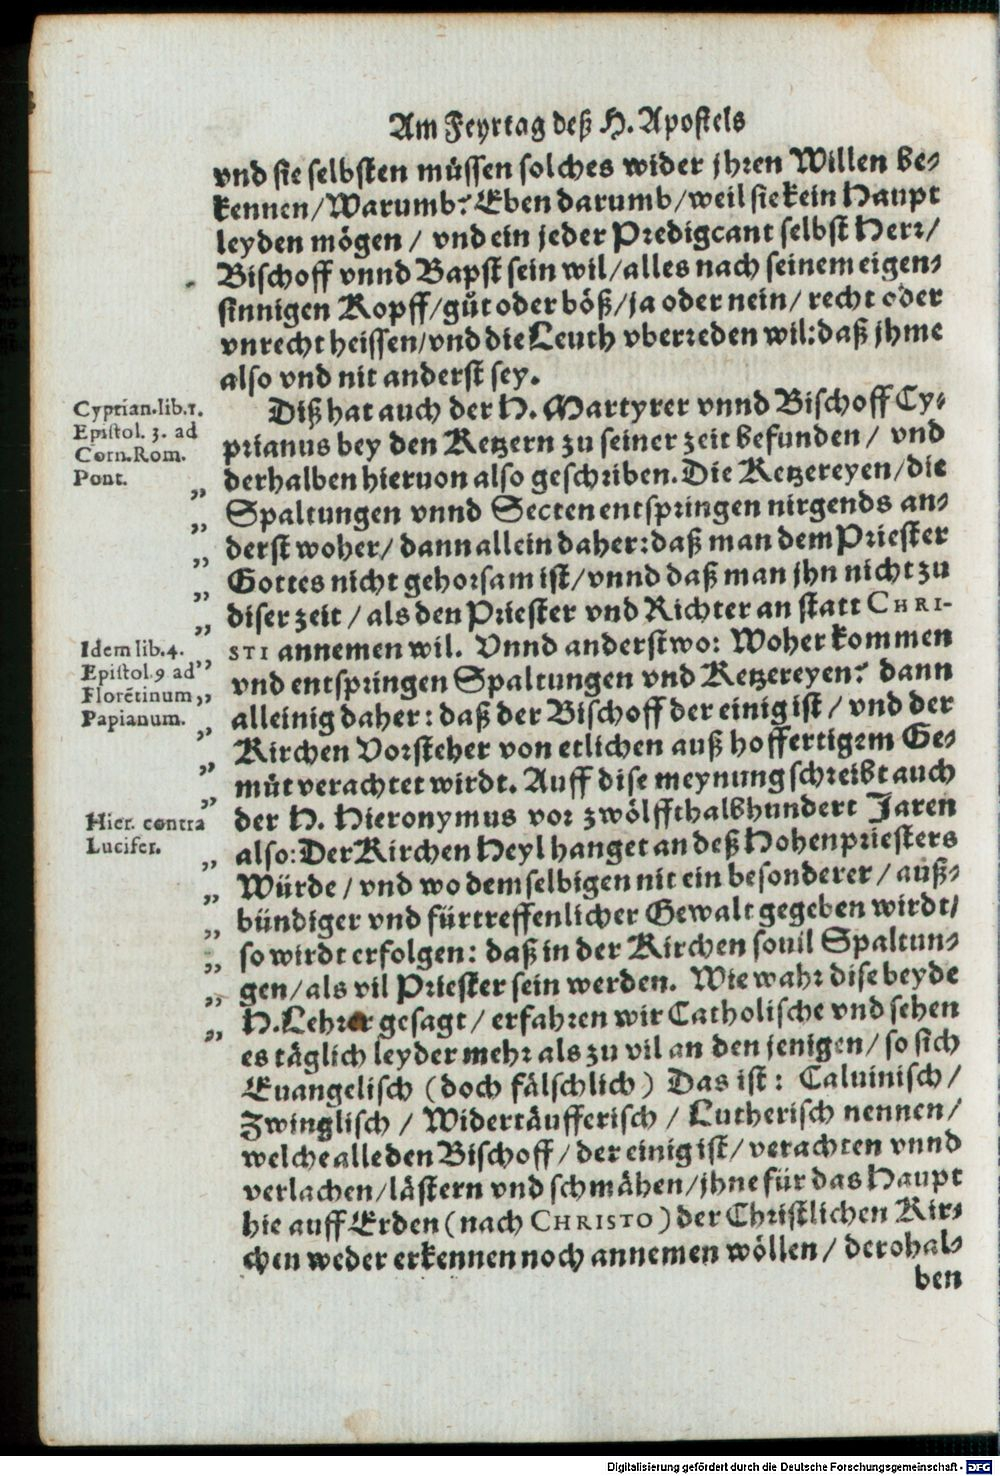 Am Feyrtag deß H. Apostels
vnd sie selbsten müssen solches wider jhren Willen be-
kennen/Warumb? Eben darumb/weil sie kein Haupt
leyden mögen / vnd ein jeder Predigcant selbst Herr/
Bischoff vnnd Bapst sein wil/alles nach seinem eigen-
sinnigen Kopff/gůt oder böß/ja oder nein/ recht oder
vnrecht heissen/vnd die Leuth vberreden wil: daß jhme
also vnd nit anderst sey.
Cyprian. lib. 1.
Epistol. 3. ad
Corn. Rom.
Pont.
Diß hat auch der H. Martyrer vnnd Bischoff Cy-
prianus bey den Ketzern zu seiner zeit befunden / vnd
derhalben hieruon also geschriben. Die Ketzereyen/die
„ Spaltungen vnnd Secten entspringen nirgends an-
„ derst woher/ dann allein daher: daß man dem Priester
„ Gottes nicht gehorsam ist/vnnd daß man jhn nicht zu
„ diser zeit / als den Priester vnd Richter an statt CHRI-
„ STI annemen wil. Vnnd anderstwo: Woher kommen
Idem lib. 4.
Epistol. 9 ad
Florẽtinum
Papianum.
„ vnd entspringen Spaltungen vnd Ketzereyen? dann
„ alleinig daher: daß der Bischoff der einig ist / vnd der
„ Kirchen Vorsteher von etlichen auß hoffertigem Ge-
„ müt verachtet wirdt. Auff dise meynung schreibt auch
„ der H. Hieronymus vor zwölffthalbhundert Jaren
Hier. contra
Lucifer.
also: Der Kirchen Heyl hanget an deß Hohenpriesters
„ Würde / vnd wo demselbigen nit ein besonderer / auß-
„ bündiger vnd fürtreffenlicher Gewalt gegeben wirdt/
„ so wirdt erfolgen: daß in der Kirchen souil Spaltun-
„ gen/als vil Priester sein werden. Wie wahr dise beyde
„ H. Lehrer gesagt / erfahren wir Catholische vnd sehen
„ es täglich leyder mehr als zu vil an den jenigen/ so sich
Euangelisch (doch fälschlich) Das ist: Caluinisch /
Zwinglisch / Widertäufferisch / Lutherisch nennen/
welche alle den Bischoff / der einig ist/ verachten vnnd
verlachen/lästern vnd schmähen/jhne für das Haupt
hie auff Erden (nach CHRISTO) der Christlichen Kir-
chen weder erkennen noch annemen wöllen / derohal-
ben
Digitalisierung gefördert durch die Deutsche Forschungsgemeinschaft - DFG